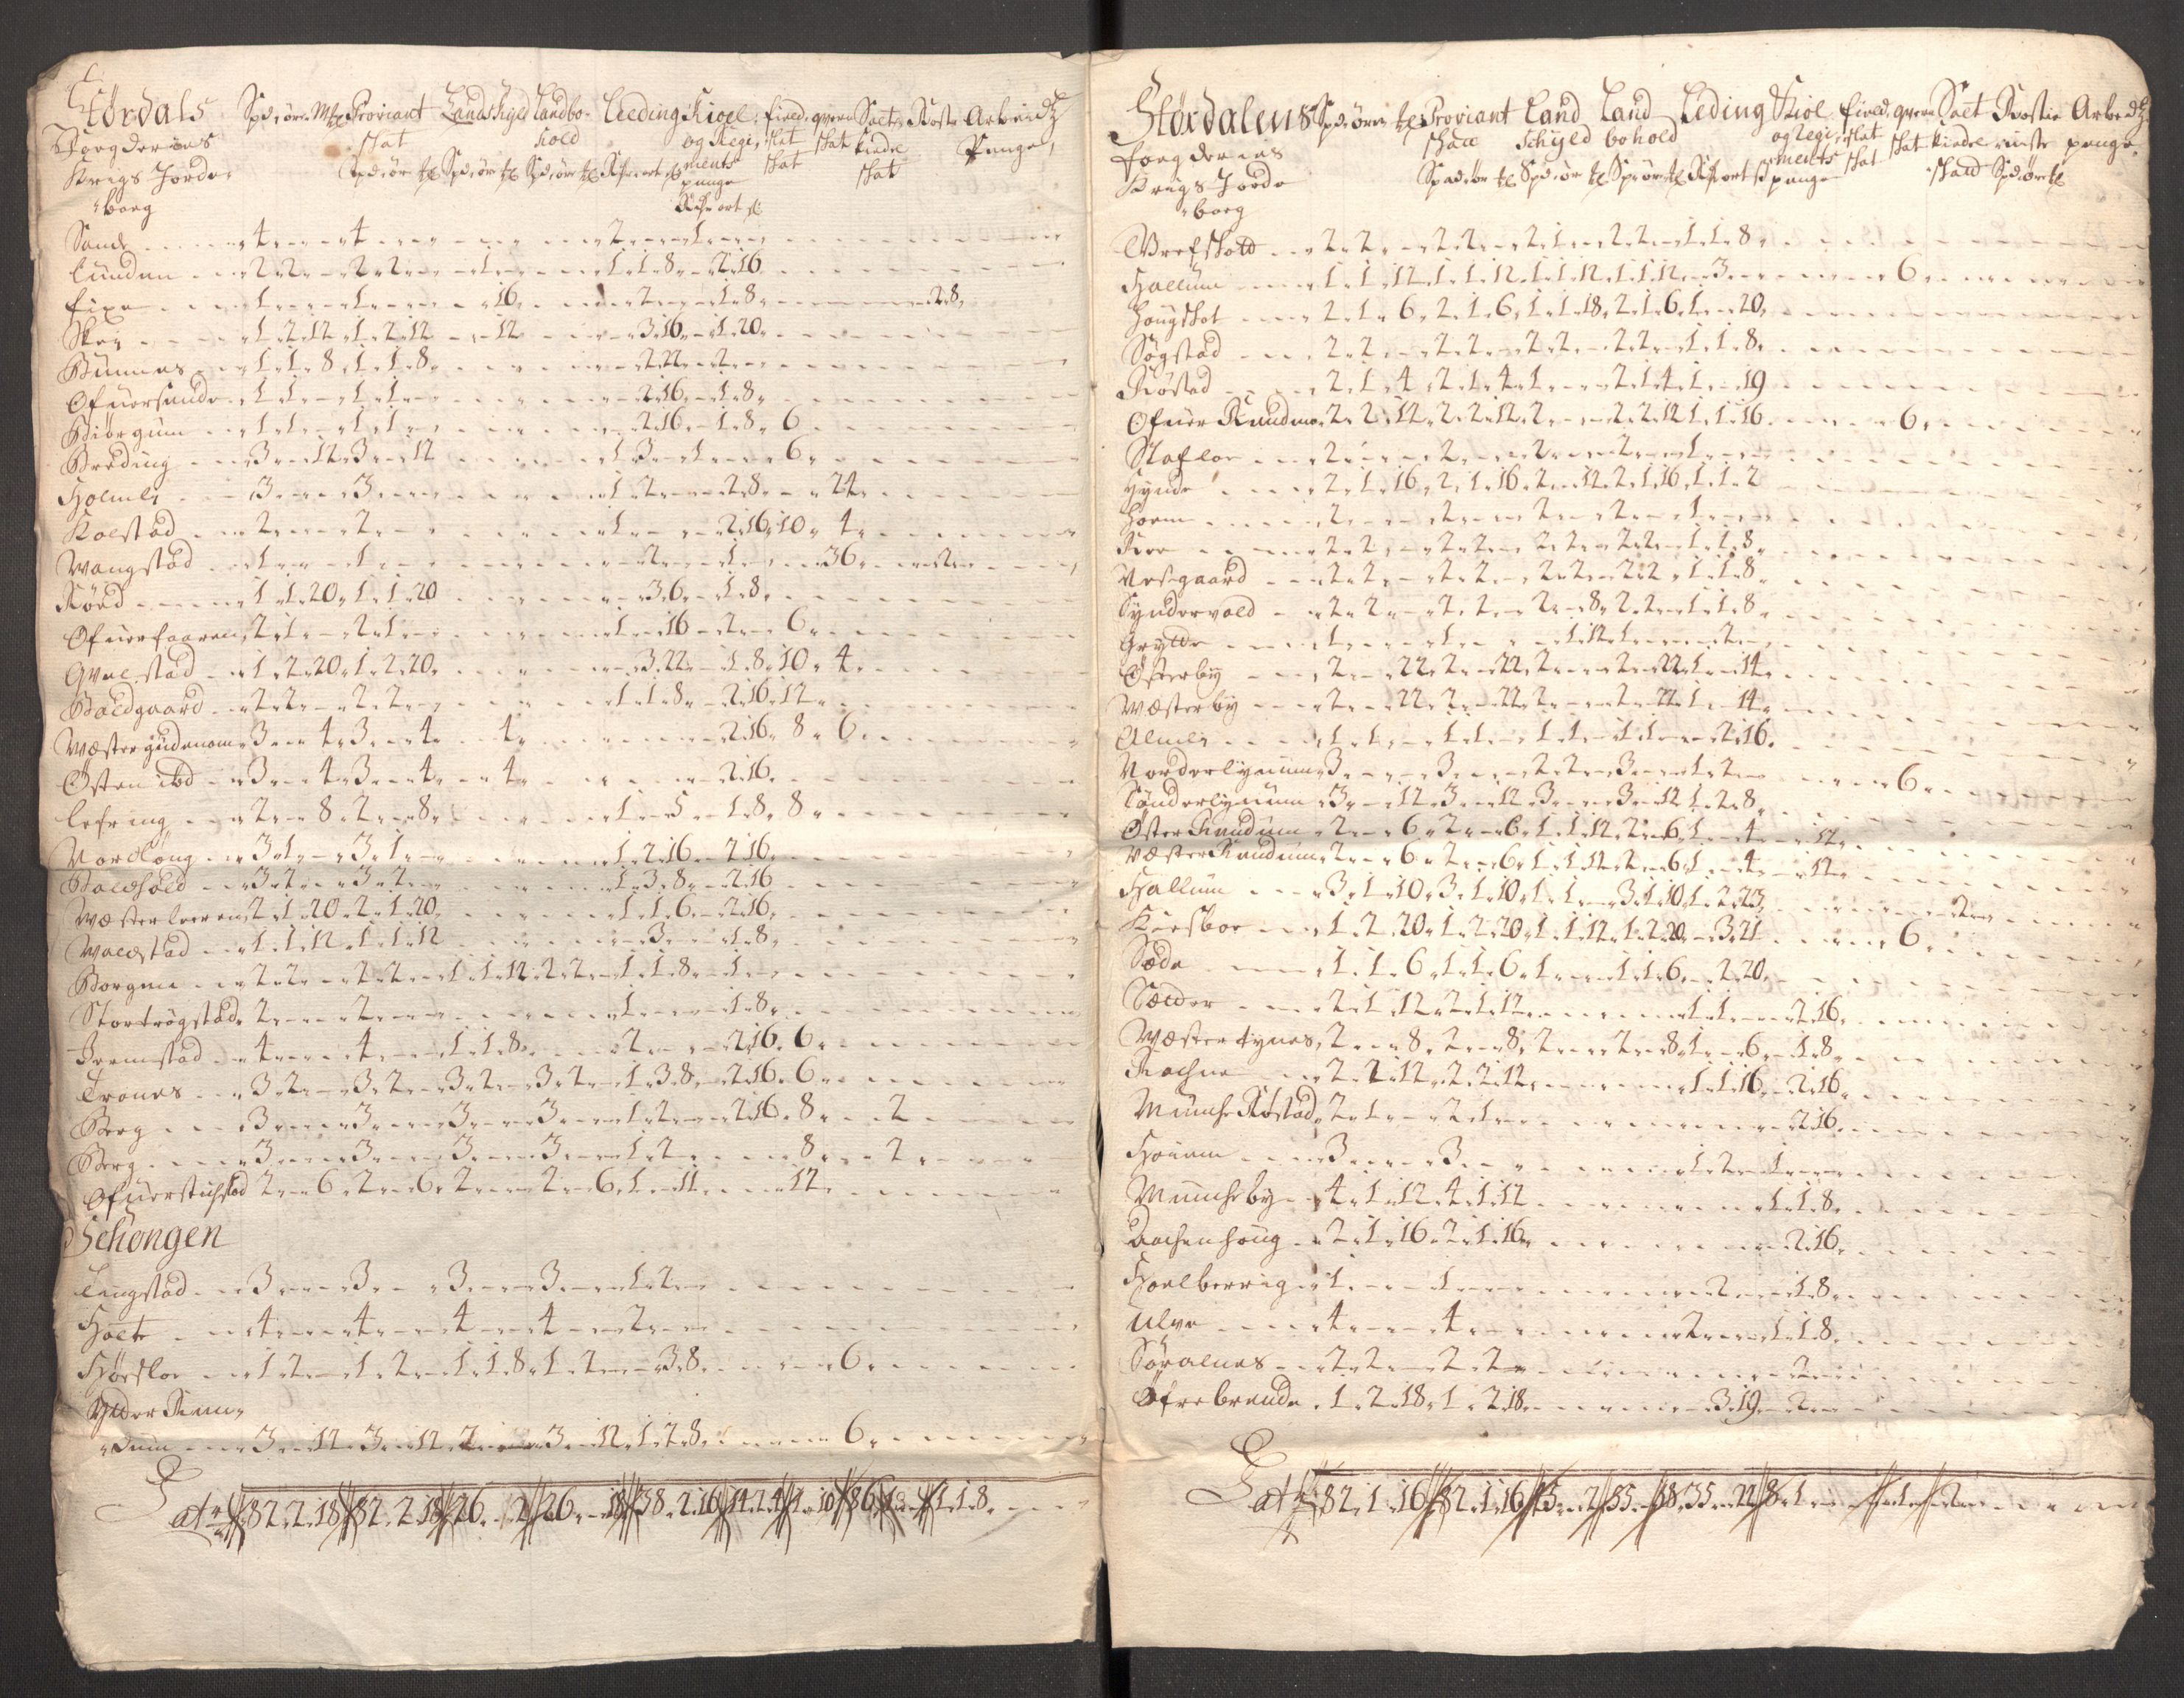 Størdals Spd: ör: Mk Proviant Landschyld Landbo- Leeding Kiøel, field, qvern Saet Koste Arbeidtz
Foegderies skat hold og Regi, skat skat kindel Penge,
Krigs Jorde, Spd: ör Spd: ör Spd: ör ort ments skat skat
boeg penge
ort
Sande 4 4 2 1
Lunden 2 2 2 2 1 1 1 8 2 16
fixe 1 1 16 2 1 8 2 8
Skey 1 2 12 1 2 12 12 3 16 1 20
Bunnes 1 1 8 1 1 8 2 22 2
Ofuersunde 1 1 1 1 2 16 1 8
Biörgum 1 1 1 1 2 16 1 8 6
Breding 3 12 3 12 1 3 1 6
Holmli 3 3 1 2 2 8 24
Kolstad 2 2 1 2 16 10 4
Wangstad 1 1 2 1 36 2
Röed 1 1 20 1 1 20 3 6 1 8
Ofuerfaaren 2 1 2 1 1 16 2 6
Qvelstad 1 2 20 1 2 20 3 22 1 8 10 4
Baldgaard 2 2 2 2 1 1 8 2 16 12
Wæstergudenom 3 4 3 4 4 2 16 8 6
Östen ibd 3 4 3 4 4 2 16
Lefring 2 8 2 8 1 5 1 8 8
Nordlöng 3 1 3 1 1 2 16 2 16
Baldhold 3 2 3 2 1 3 8 2 16
Wæsterleeren 2 1 20 2 1 20 1 1 6 2 16
Waldstad 1 1 12 1 1 12 3 1 8
Borgen 2 2 2 2 1 1 12 2 2 1 1 8 1
Stortrögstad 2 2 1 1 8
Fremstad 4 4 1 1 8 2 2 16 6
Trones 3 2 3 2 3 2 3 2 1 3 8 2 16 6
Berg 3 3 3 3 1 2 2 16 8 2
Berg 3 3 3 3 1 2 8 2
Ofuerstuhstad 2 6 2 6 2 2 6 1 11 12
Schongen
Lengstad 3 3 3 3 1 2
Holte 4 4 4 4 2
Hörsloe 1 2 1 2 1 1 8 1 2 3 8 6
Ytter Renn,
dum 3 12 3 12 2 3 12 1 2 8 6
Lat 82 2 18 82 2 18 26 2 26 18 38 2 16 14 2 4 2 10 86 1 1 8
Størdalens Spd: ör Proviant Land Land Leding Kiøl field, qvern Saet Koste Arbeidtz
foegderies schatt Schyld bohold og Regi, skat skat kindel penge
Krigs Jorde Spd: ör Spd: ör Spd: ör ort ments skat skatt Spd: ör
boeg penge
2 2 2 2 2 1 2 2 1 1 8
Hallum 1 1 12 1 1 12 1 1 12 1 1 12 3 6
Hougskot 2 1 6 2 1 6 1 1 18 2 1 6 1 20
Sögstad 2 2 2 2 2 2 2 2 1 1 8
Röstad 2 1 4 2 1 4 1 2 1 4 1 19
Ofuer Rendum 2 2 12 2 2 12 2 2 2 12 1 1 16 6
Stafloe 2 2 2 2 1
Hynde 2 1 16 2 1 16 2 12 2 1 16 1 1 2
Hoem 2 2 2 2 1
Kroe 2 2 2 2 2 2 2 2 1 2 8
Nesgaard 2 2 2 2 2 2 2 2 1 1 8
Syndervold 2 2 2 2 2 8 2 2 1 1 8
Grytte 1 1 1 12 1 2
Österby 2 22 2 22 2 2 22 1 14
Wæsterby 2 22 2 22 2 2 22 1 14
Almle 1 1 1 1 1 1 1 1 2 16
Norderlynum 3 3 2 2 3 1 2 6
Sönderlynum 3 12 3 12 3 3 12 1 2 8
Öster Rendum 2 6 2 6 1 1 12 2 6 1 4 12
Væster Rendum 2 6 2 6 1 1 12 2 6 1 4 12
Hallum 3 1 10 3 1 10 1 1 3 1 10 1 2 23 2
Kirsboe 1 2 20 1 2 20 1 1 12 1 2 20 3 21 6
Sæde 1 1 6 1 1 6 1 1 1 6 2 20
Sælder 2 1 12 2 1 12 1 1 2 16
Wæster tynes 2 8 2 8 2 2 8 1 6 1 8
Rachne 2 2 12 2 2 12 1 1 16 2 16
Munche Röstad 2 1 2 1 2 16
Houem 3 3 1 2 1
Muncheby 4 1 12 4 1 12 1 1 8
Aachenhoug 2 1 16 2 1 16 2 16
Hoelberrig 1 1 2 1 8
Ulve 4 4 2 1 1 8
Söralnes 2 2 2 2 2
Øfrebrende 1 2 18 1 2 18 3 19 2
Lat 82 1 16 82 1 16 2 55 18 35 22 8 1 1 2